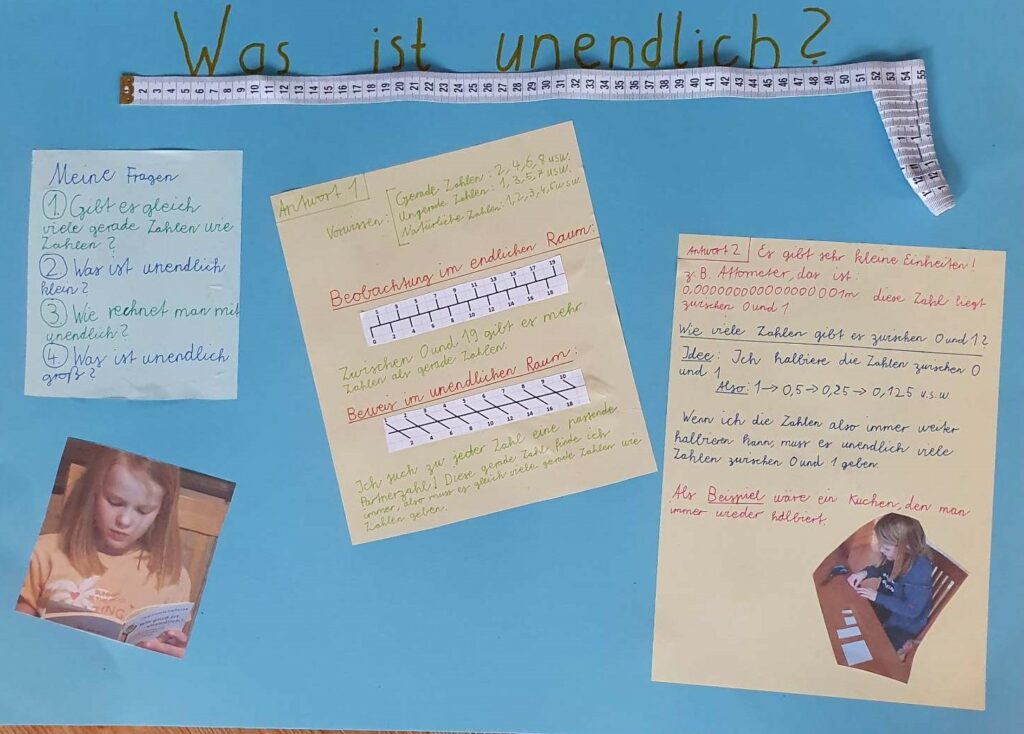 Was ist unendlich?
1 2 3 4 5 6 7 8 9 10 11 12 13 14 15 16 17 18 19 20 21 22 23 24 25 26 27 28 29 30 31 32 33 34 35 36 37 38 39 40 41 42 43 44 45 46 47 48 49 50 51 52 53 54 55
Meine Fragen
1. Gibt es gleich
viele gerade Zahlen wie
Zahlen?
2 Was ist unendlich
klein?
3 Wie rechnet man mit
unendlich?
4. Was ist unendlich
groß?
Antwort 1
Vorwissen:
Gerade Zahlen: 2, 4, 6, 8 usw.
Ungerade Zahlen: 1, 3, 5, 7 usw.
Natürliche Zahlen: 1, 2, 3, 4, 5 usw.
Beobachtung im endlichen Raum:
1 3 5 7 9 11 13 15 17 19
0 2 4 6 8 10 12 14 16 18
Zwischen 0 und 19 gibt es mehr
Zahlen als gerade Zahlen.
Beweis im unendlichen Raum:
1 2 3 4 5 6 7 8 9 10
2 4 6 8 10 12 14 16 18
Ich such zu jeder Zahl eine passende
Partnerzahl! Diese gerade Zahl finde ich
immer, also muss es gleich viele gerade Zahlen wie
Zahlen geben.
Antwort 2 Es gibt sehr kleine Einheiten!
z.B. Attometer, das ist:
0,000000000000000001m diese Zahl liegt
zwischen 0 und 1
Wie viele Zahlen gibt es zwischen 0 und 1?
Idee: Ich halbiere die Zahlen zwischen 0
und 1
Also: 1→0,5→0,25→0,125 u.s.w.
Wenn ich die Zahlen also immer weiter
halbieren kann, muss es unendlich viele
Zahlen zwischen 0 und 1 geben.
Als Beispiel wäre ein Kuchen, den man
immer wieder halbiert.